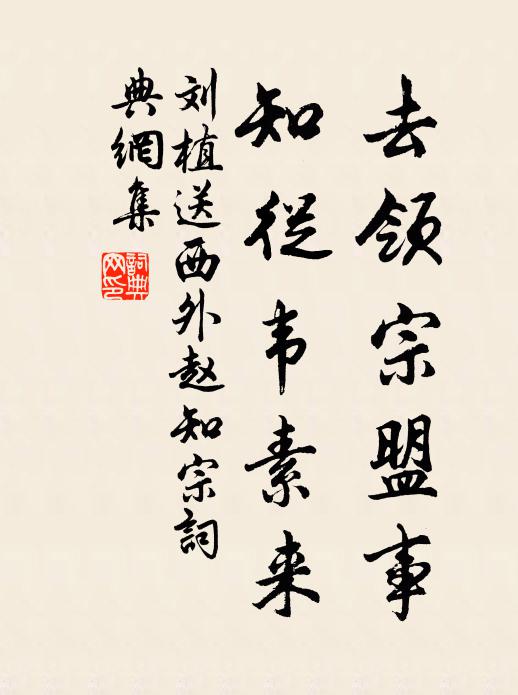 去领宗盟事
知從韦素来
刘植送西外赵知宗詞
典網集
詞典网印